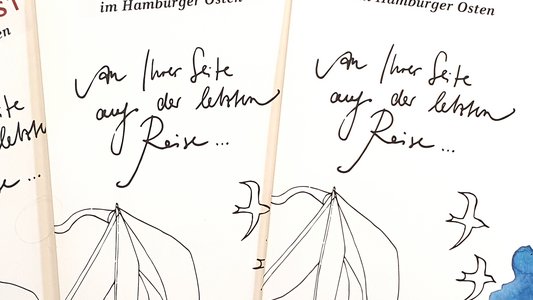 ST
im Hamburger Osten
An Ihrer Seite
auf der letzten
Reise ...
Hamburger Osten
An Ihrer Seite
auf der letzten
Reise ...